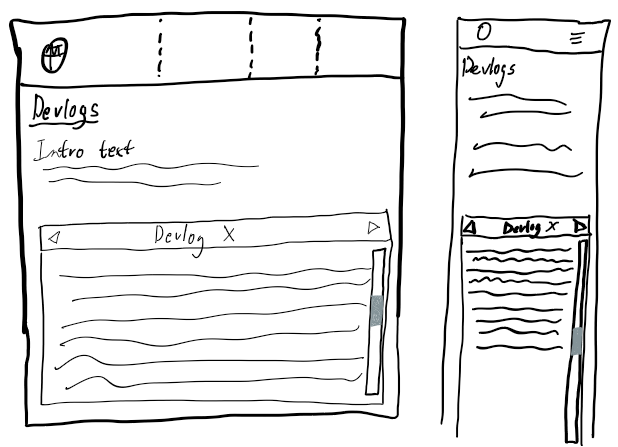 Devlogs
Intro text
Devlog X
Devlogs
Devlog X